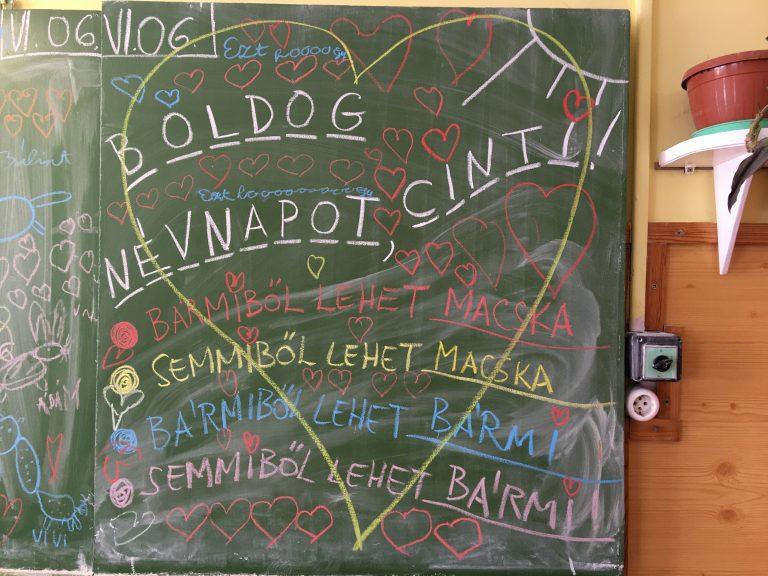 VI. 06.
VI. 06.
Ezt hoooogy
BOLDOG
Ezt hoooooooooogy
NÉVNAPOT, CINTI!
BÁRMIBŐL LEHET MACSKA
SEMMIBŐL LEHET MACSKA
BÁRMIBŐL LEHET BÁRMI
SEMMIBŐL LEHET BÁRMI
Bálint
ÁDÁM
VIVI